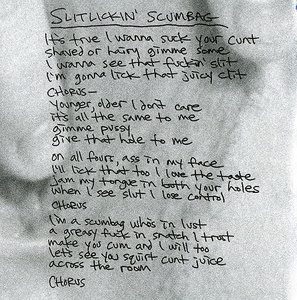 SLITLICKIN' SCUMBAG
It's true I wanna suck your cunt
shaved or hairy gimme some
I wanna see that fuckin' slit
I'm gonna lick that juicy clit
CHORUS-
younger, older I don't care
it's all the same to me
gimme pussy
give that hole to me
on all fours, ass in my face
I'll lick that too I love the taste
jam my tongue in both your holes
when I see slut I lose control
CHORUS
I'm a scumbag who's in lust
a greasy fuck in snatch I trust
make you cum and I will too
let's see you squirt cunt juice
across the room
CHORUS